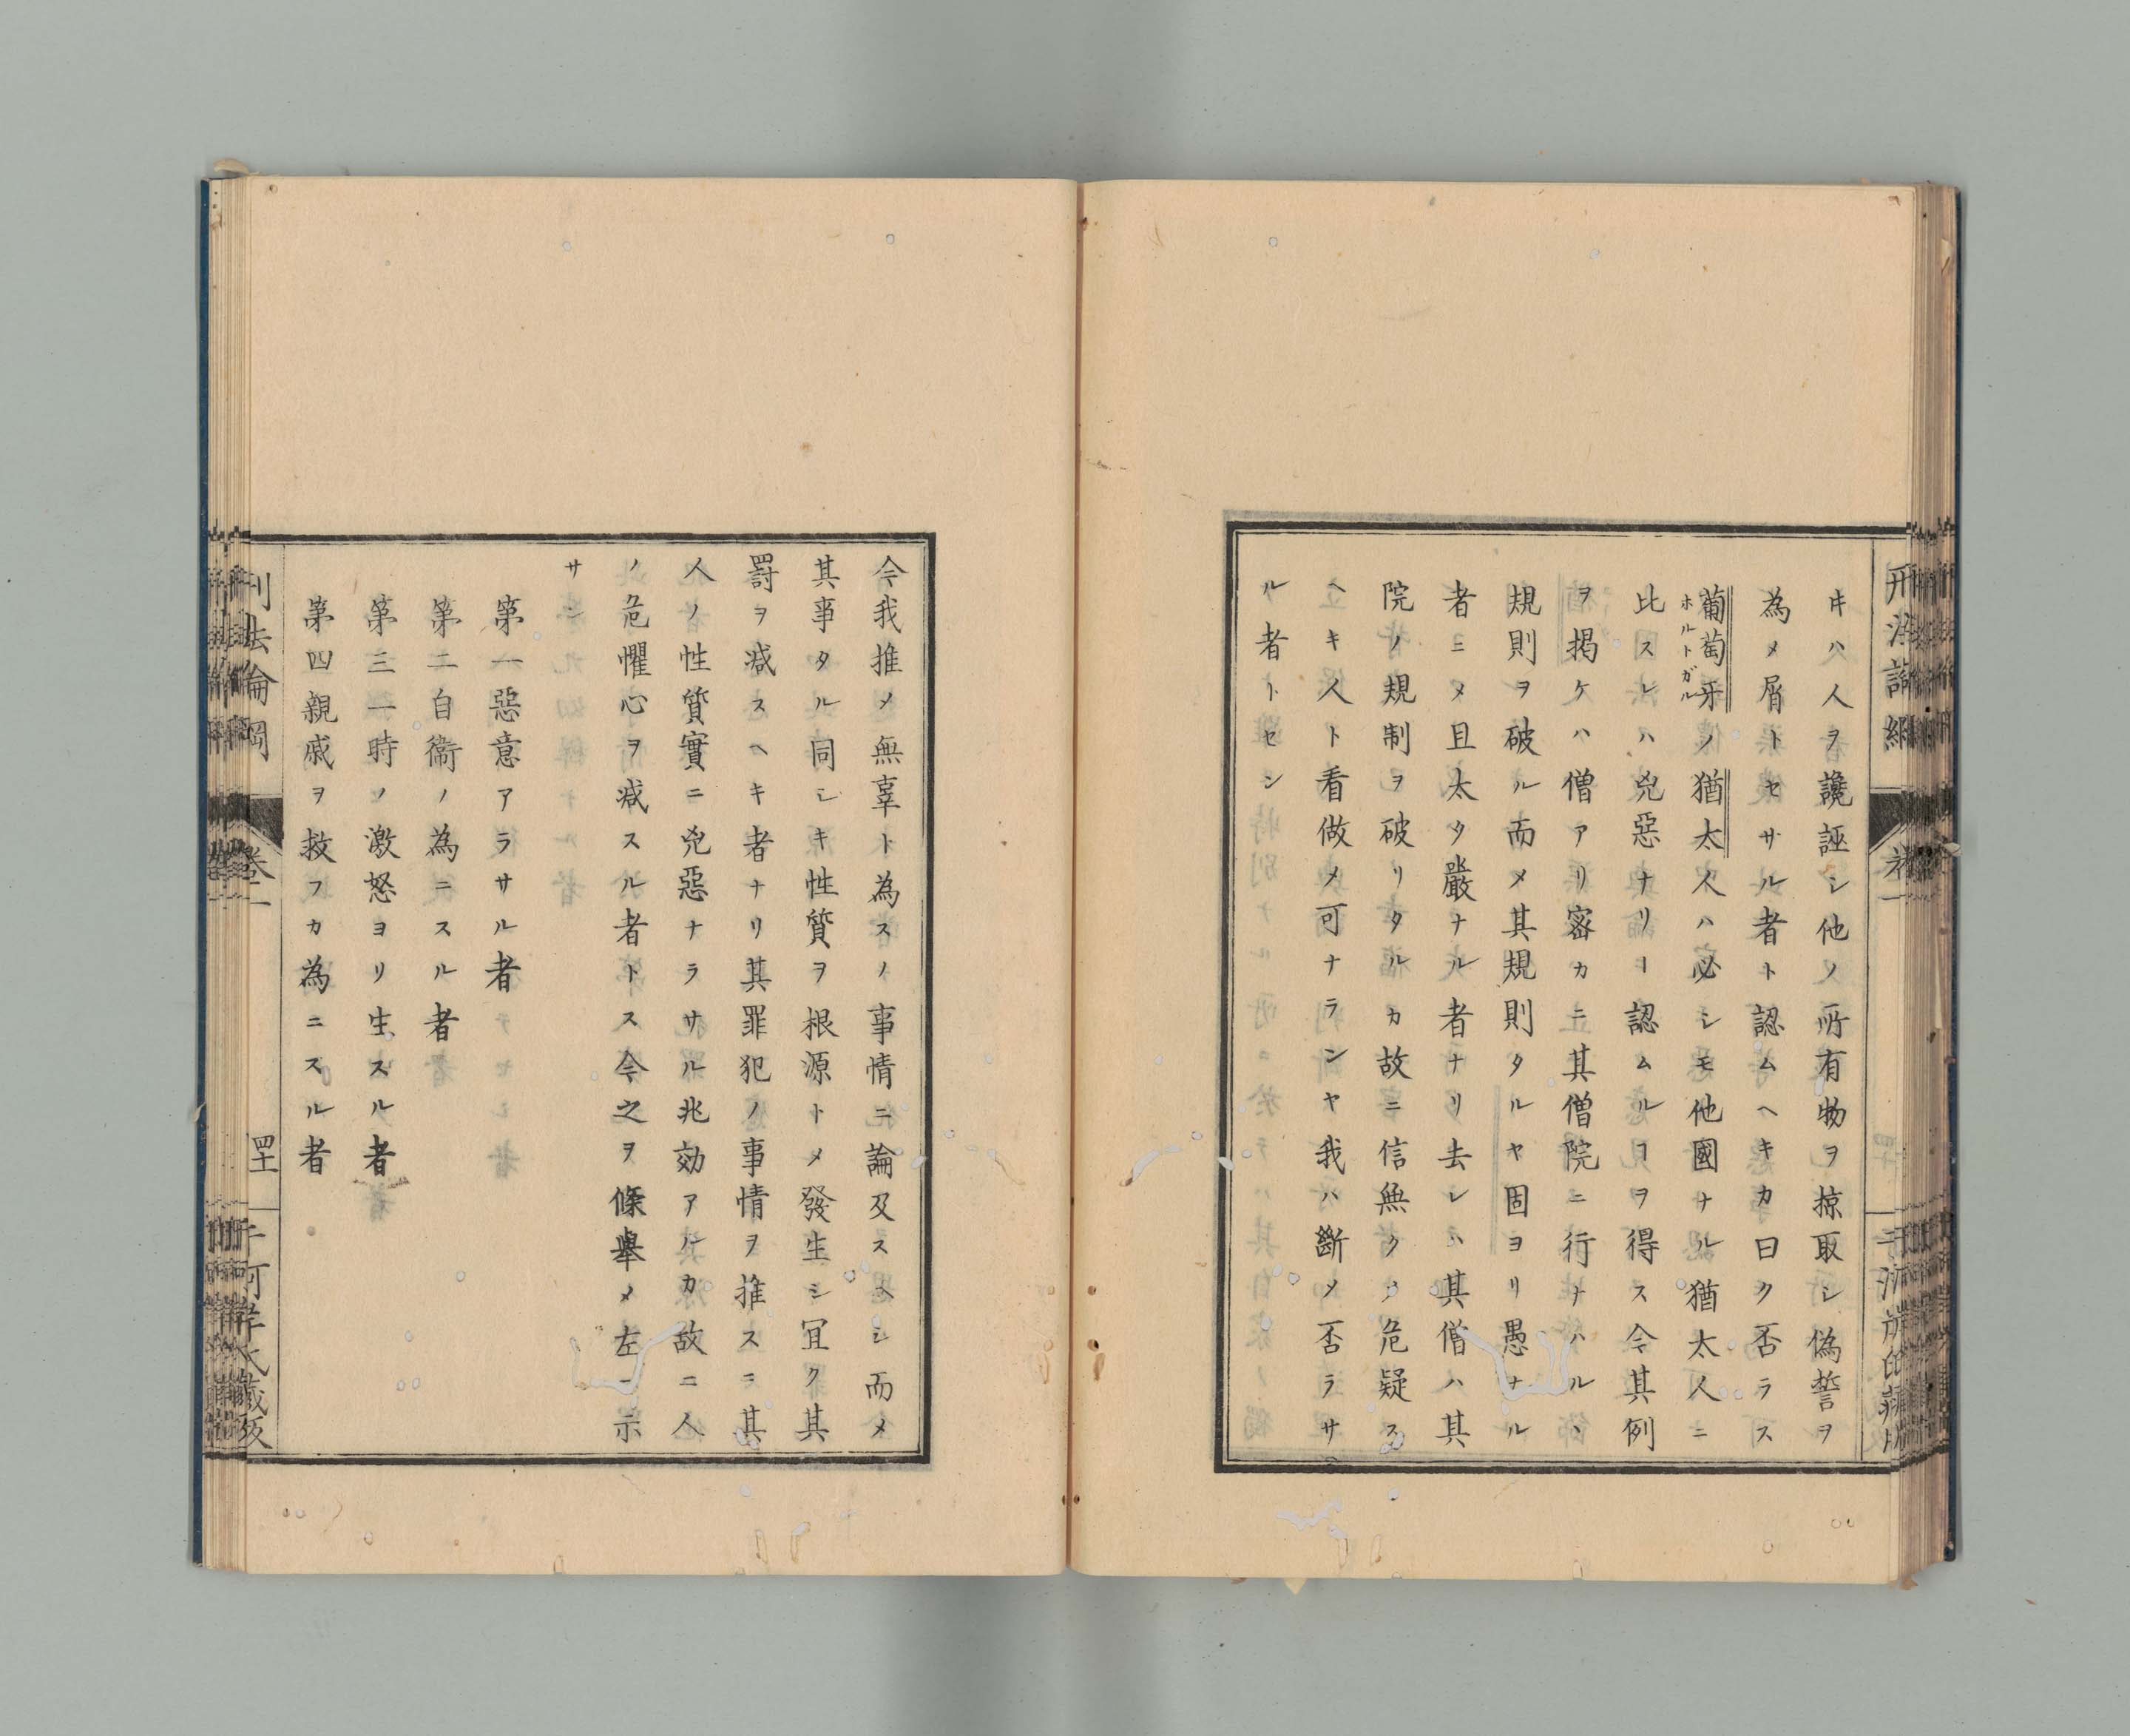 キハ人ヲ讒誣シ他ノ所有物ヲ掠取シ偽誓ヲ
為メ屑トセサル者ト認ムヘキカ曰ク否ラス
葡萄牙ノ猶太人ハ必シモ他國ナル猶太人ニ
ホルトガル
比スレハ兇惡ナリㄧ認ムルヿヲ得ス今其例
ヲ掲ケハ僧アリ密カニ其僧院ニ行ナハルヽ
規則ヲ破ル而メ其規則タルヤ固ヨリ愚ナル
者ニメ且太タ嚴ナル者ナリ去レハ其僧ハ其
院ノ規制ヲ破リタルカ故ニ信無ク危疑ス
ヘキ人ト看做メ可ナランヤ我ハ斷メ否ラサ
ル者トセン
今我推メ無辜ト為スノ事情ニ論及スヘシ而メ
其事タル同シキ性質ヲ根源トメ發生シ冝ク其
罰ヲ减スヘキ者ナリ其罪犯ノ事情ヲ推スニ其
人ノ性質實ニ兇惡ナラサル兆効アルカ故ニ人
ノ危懼心ヲ减スル者トス今之ヲ條舉メ左ニ示
サン
第一惡意アラサル者
第二自衞ノ為ニスル者
第三一時ノ激怒ヨリ生スル者
第四親戚ヲ救フカ為ニスル者
卷二